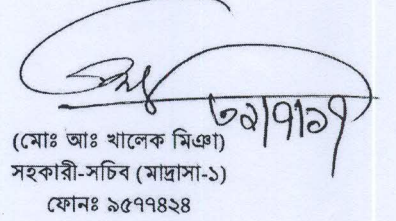 ৩১/৭/১৭
(মোঃ আঃ খালেক মিঞা)
সহকারী-সচিব (মাদ্রাসা-১)
ফোনঃ ৯৫৭৭৪২৪